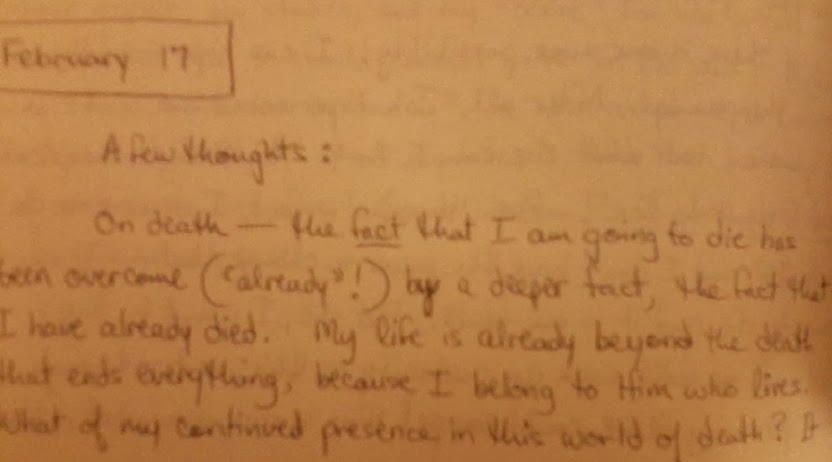 February 17
A few thoughts:
On death — the fact that I am going to die has
been overcome ("already"!) by a deeper fact, the fact that
I have already died. My life is already beyond the death
that ends everything, because I belong to Him who lives.
What of my continued presence in this world of death? It